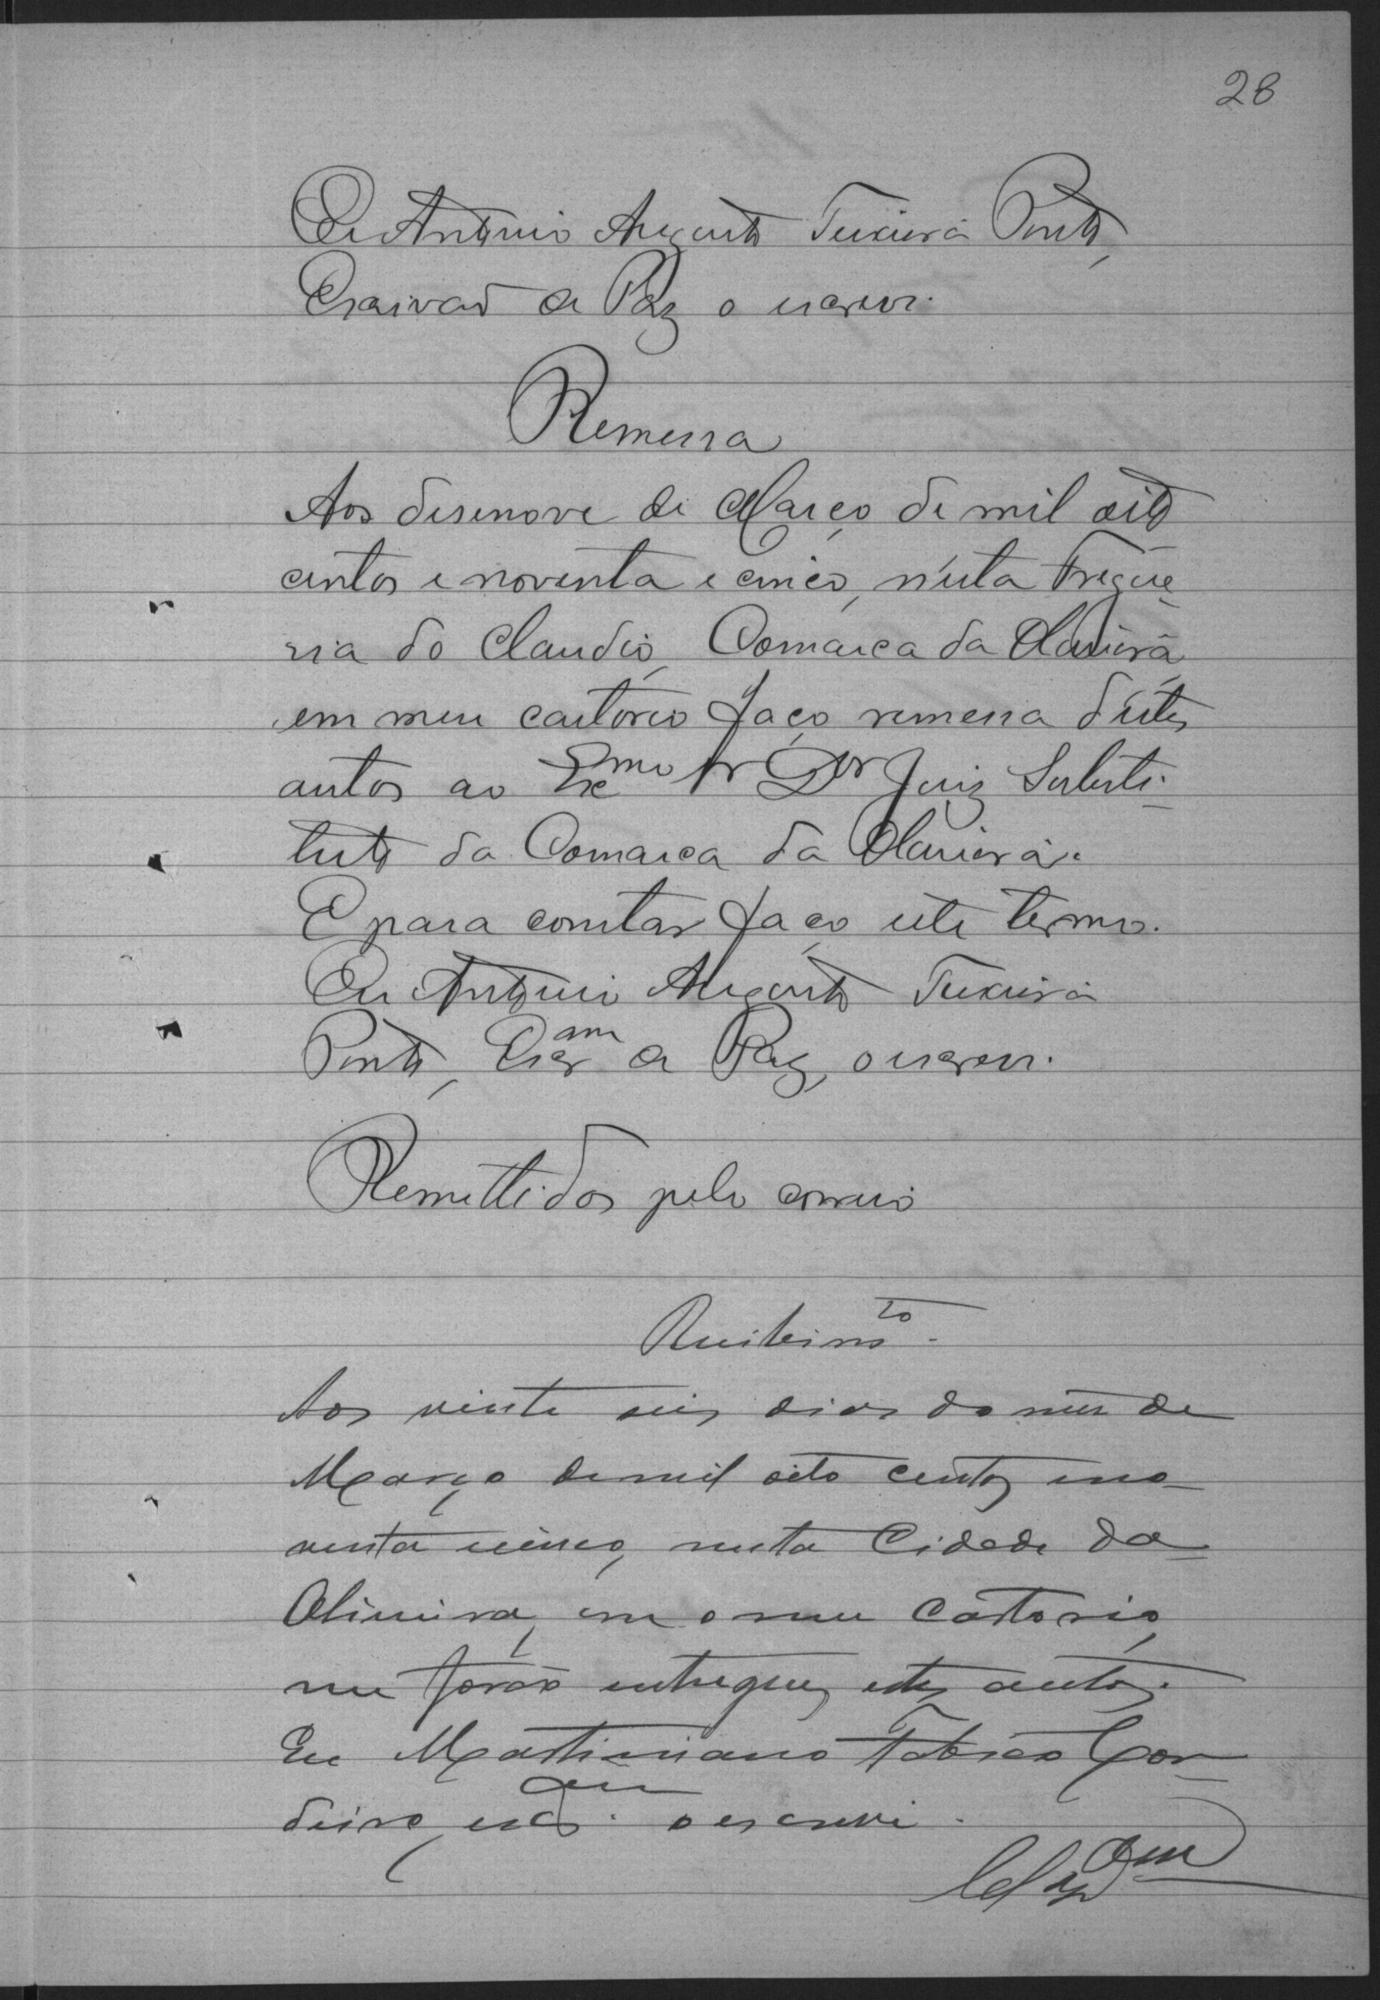 28
Eu Antonio Augusto Teixeira Pinto,
Escrivaõ de Paz o escrevi.
Remessa
Aos desenove de Março de mil oito
centos e noventa e cinco, n'esta Fregue
sia do Claudio, Comarca da Oliveira,
em meu cartorio faço remessa d'estes
autos ao Exmo Sr Dor Juiz Substi-
tuto da Comarca da Oliveira.
E para constar faço este termo.
Eu Antonio Augusto Teixeira
Pinto, Escram de Paz, o escrevi.
Remettidos pelo correio
Recebimto.
Aos vinte seis dias do mes de
Março de mil oito centos e no-
venta e cinco, nesta Cidade da
Oliveira, em o meu Cartorio,
me forão entregues estes autos.
Eu Martiniano Fabião Cor-
deiro, escam. o escrevi.